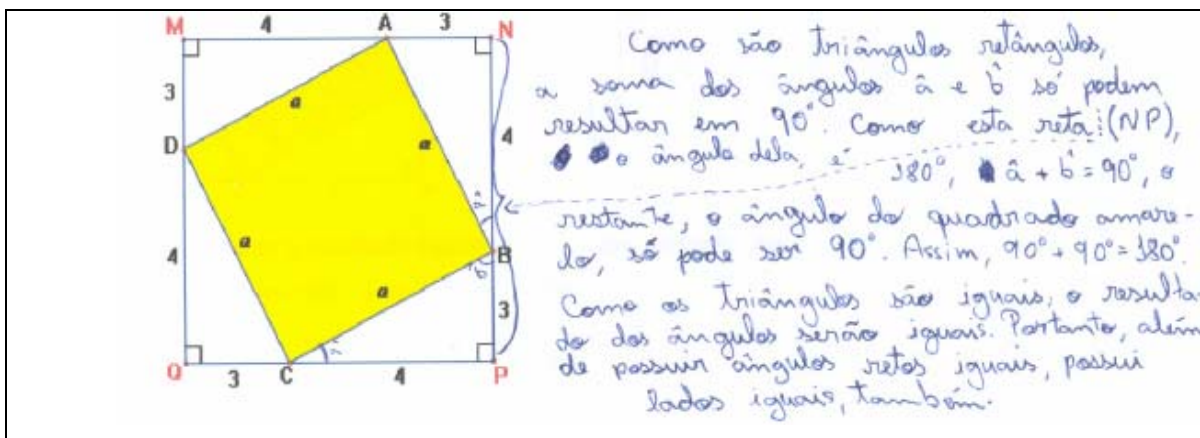 M 4 A 3 N
3
a
D
a
4
a
4
a
B
3
Q 3 C 4 P
Como são triângulos retângulos,
a soma dos ângulos â e b̂ só podem
resultar em 90°. Como esta reta (NP),
o ângulo dela, é 180°, â + b̂ = 90°, o
restante, o ângulo do quadrado amare-
lo, só pode ser 90°. Assim, 90° + 90° = 180°.
Como os triângulos são iguais, o resulta-
do dos ângulos serão iguais. Portanto, além
de possuir ângulos retos iguais, possui
lados iguais, também.